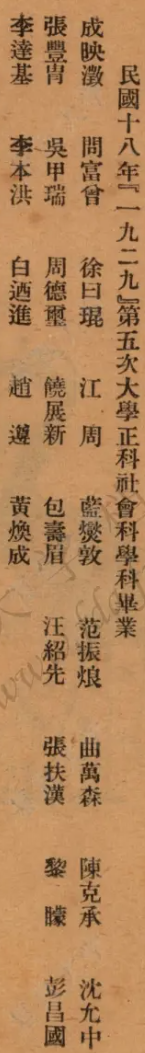 民國十八年『一九二九』第五次大學正科社會科學科畢業
成映澂 問富曾 徐曰琨 江周 藍燮敦 范振烺 曲萬森 陳克承 沈允中
張豐胄 吳甲瑞 周德璽 饒展新 包壽眉 汪紹先 張扶漢 黎矇 彭昌國
李達基 李本洪 白迺進 趙邍 黃煥成